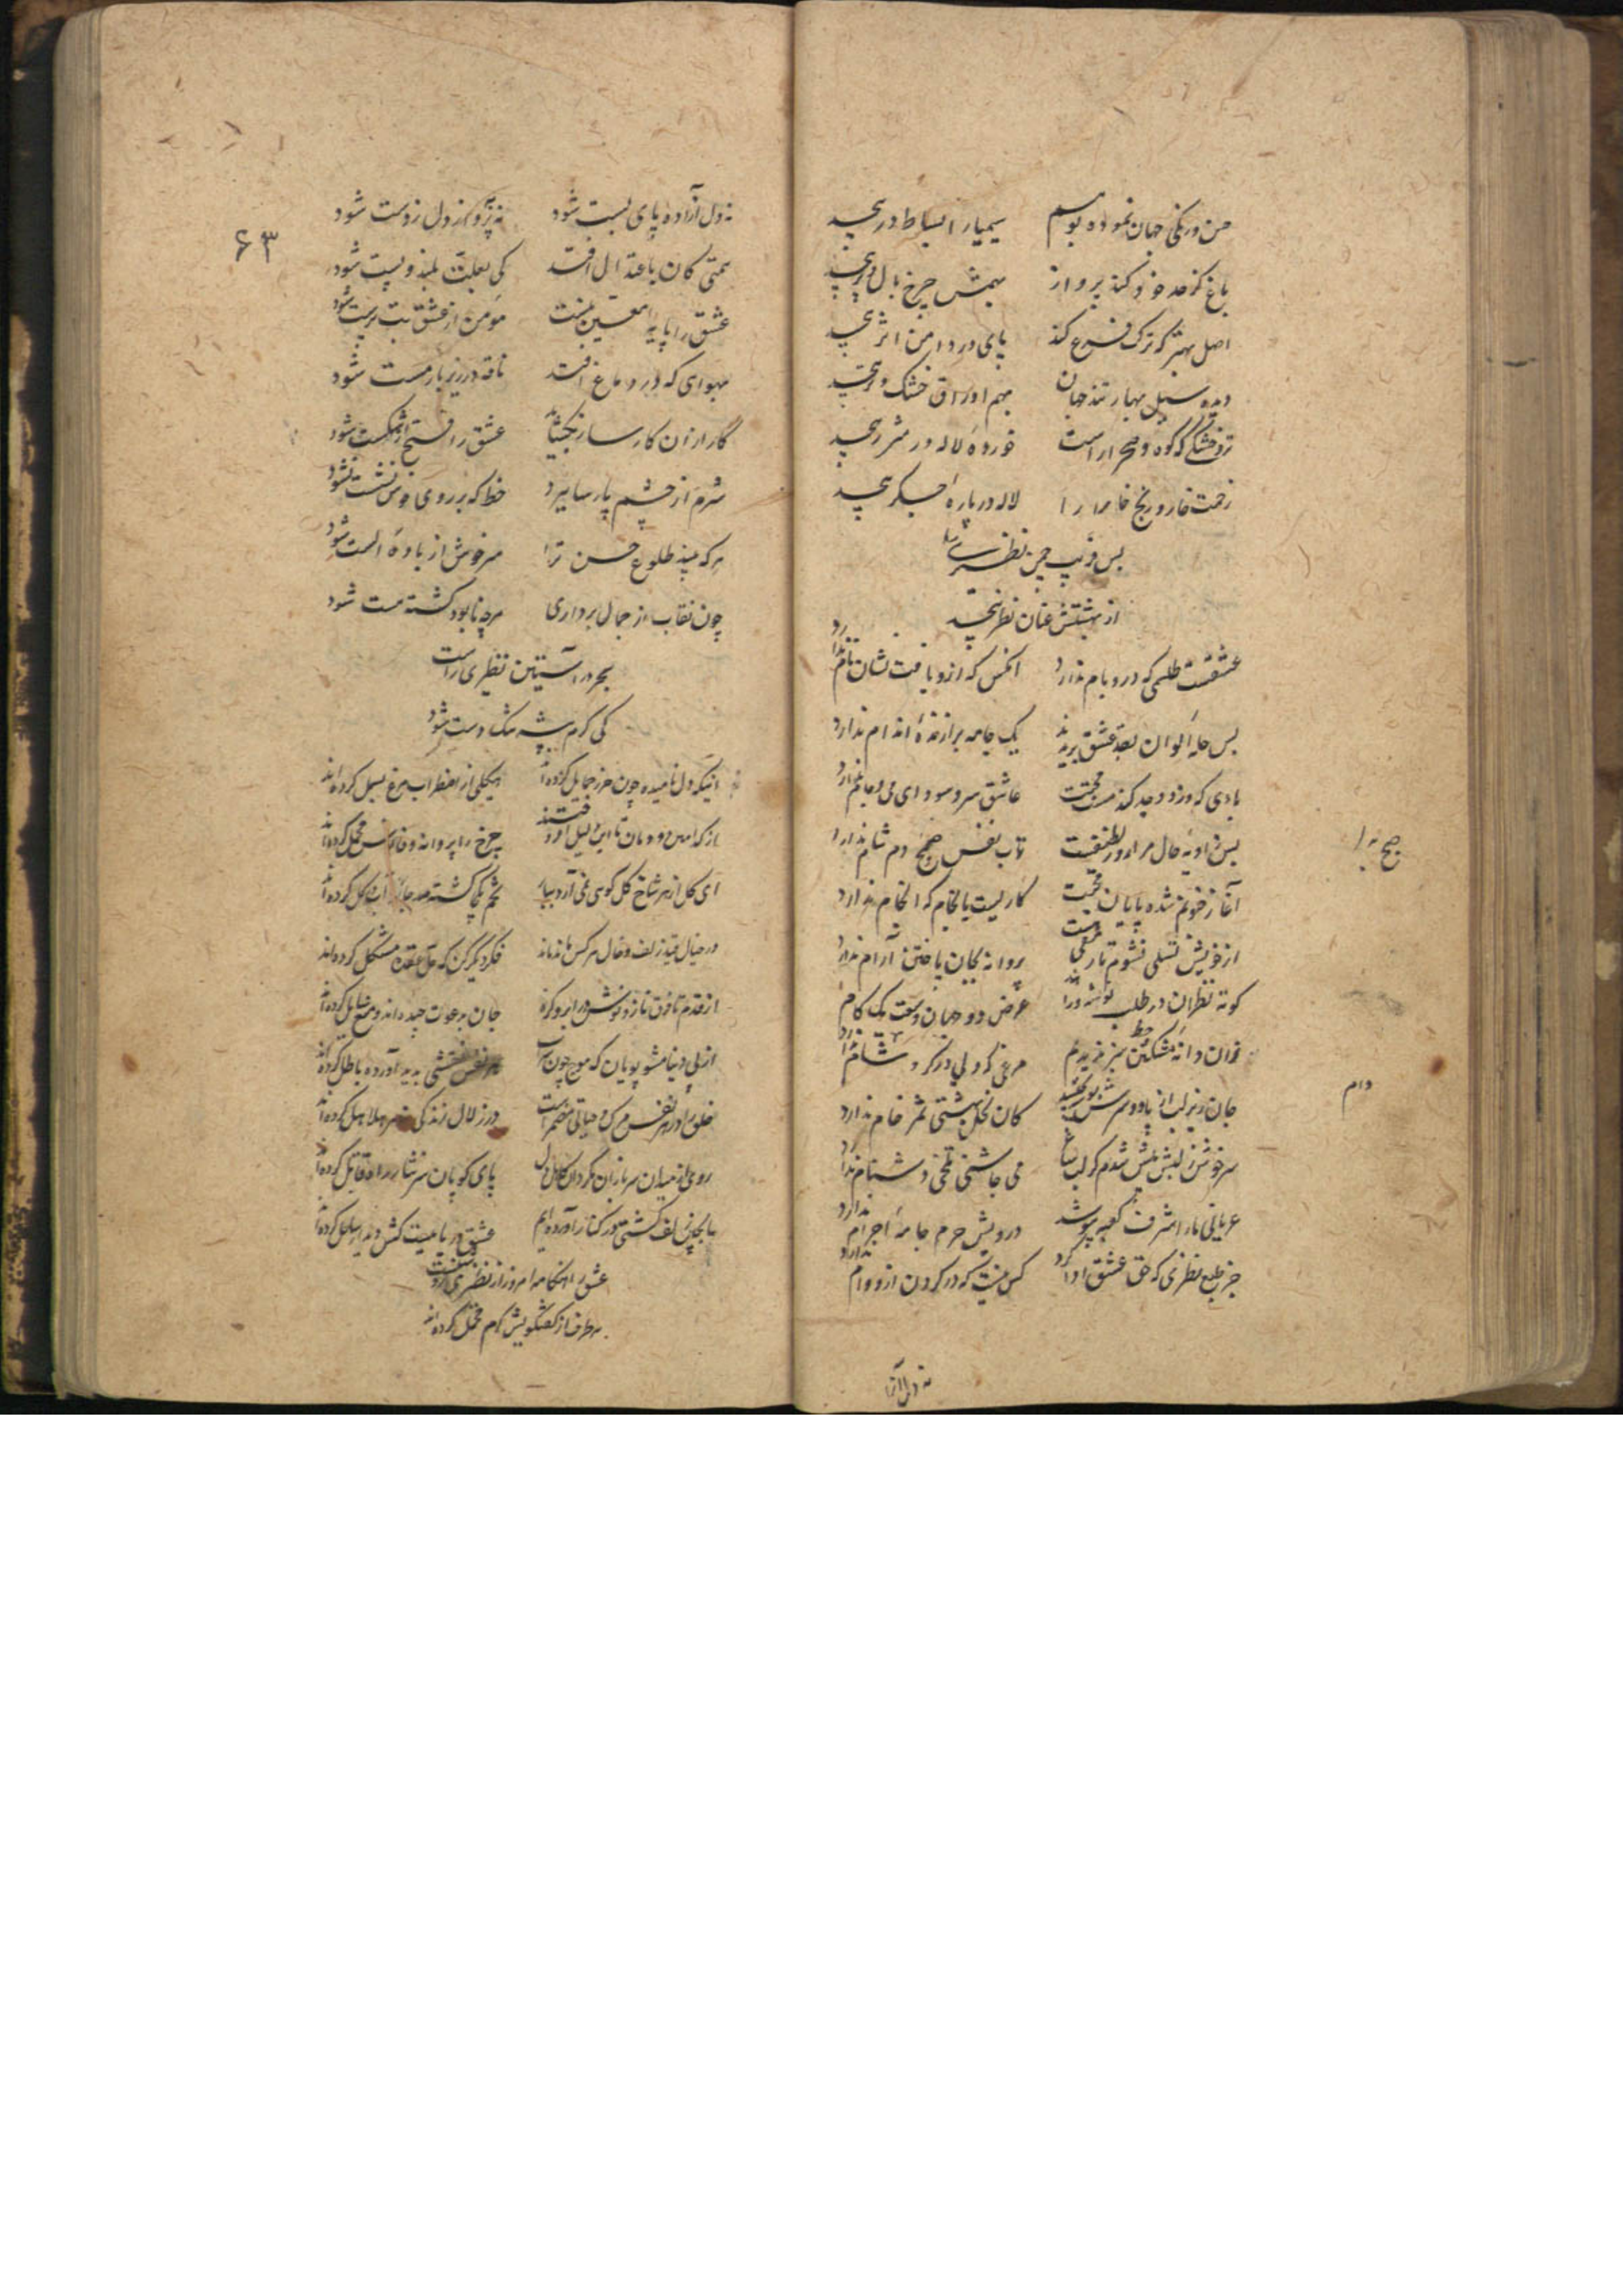 حسن در یکی جهان نموده بوسم سیمیا را بساط در پیچد
باغ کز حد خود کند پرواز بیمش چرخ بال و پر پیچد
اصل بهتر که ترک فرع کند پای در دامن اثر پیچد
دیده سیل بهار تند جهان بهم اوراق خشک و تر پیچد
تر و خشکی که کوه و صحرا راست خورده لاله در شرر پیچد
زحمت خار و رنج خارا را لاله در پاره جگر پیچد
بس فریب چمن نظیری را
از بهشتش عنان نظر پیچد
عشقست طلسمی که در و بام ندارد آنکس که ازو یافت نشان نام ندارد
بس حله الوان بقد عشق بریدند یک جامه برازنده اندام ندارد
بادی که وزد وجد کند مست محبت عاشق سر و سودای می و جام ندارد
پیش او نه حال مرا روز لطیفست تاب نفس صبح و دم شام ندارد
صبح را
آغاز فنوتم شده پایان محبت کاریست با نجام که انجام ندارد
از خویش تسلی نشوم تا رمقی هست پروانه بجان باختن آرام ندارد
کوته نظران در طلب توشه و زادند عرض دو جهان وسعت یک کام ندارد
زان دانه مشکین خط سبز پریدم مرغی که ولی در گرو شام ندارد
دام
جان زیر لب از یاد و سرش شور کشید کان نخل بهشتی ثمر خام ندارد
سرخوش ز لبش بیش شدم کز لب ساغر می چاشنی تلخی دشنام ندارد
عریانی ما را شرف کعبه بپوشد درویش حرم جامه احرام ندارد
جز طبع نظیری که حق عشق ادا کرد کس نیست که در گردن ازو وام ندارد
نه دل آزاد
۶۳
نه دل آزاده پای بست شود نه پر و از دل ز دست شود
همتی کان باعتدال افتد کی بعلت بلند و پست شود
عشق را پایه معین نیست مؤمن از عشق بت پرست شود
بهوای که در دماغ افتد ناقه در زیر بار مست شود
کار ازان کارساز بگشاید عشق را فتح از شکست شود
شرم از چشم پارسا ببرد خط که بر روی خوش نشست شود
هر که بیند طلوع حسن ترا سرخوش از باده الست شود
چون نقاب از جمال برداری هر چه نابود گشته هست شود
بحر در آستین نظیری راست
کی کرم پیشه تنگ دست شود
اینکه دل نامیده چون حرز حمایل کرده‌اند هیکلی از اضطراب مرغ بسمل کرده‌اند
از کدامین دودمان تا این دلیل آورد چرخ را پروانه و فانوس محمل کرده‌اند
ای گل از هر شاخ گل کوسی نمی آرد بپا تخم یکجا کشته صد جا از آب و گل کرده‌اند
در خیال قید زلف و خال هر کس ماند ماند فکر دیگر کن که حل عقده مشکل کرده‌اند
از قدم تا فرق ناز و نوش در ابرو گره جان بدعوت چیده‌اند و منع سایل کرده‌اند
از پی دنیا مشو پویان که موج چون سراب هر نفس نقشی پدید آورده باطل کرده‌اند
خلق را در هر نفس مرگ و حیاتی مضمر است در زلال زندگی زهر هلاهل کرده‌اند
روی از میدان سربازان مگردان کاهل دل پای کوبان سر نثار راه قاتل کرده‌اند
ما بچین زلف کشتی در کنار آورده‌ایم عشق دریاییست کش دیدار ساحل کرده‌اند
عشق را هنگامه امروز از نظیری رونقست
هر طرف از گفتگویش گرم محفل کرده‌اند